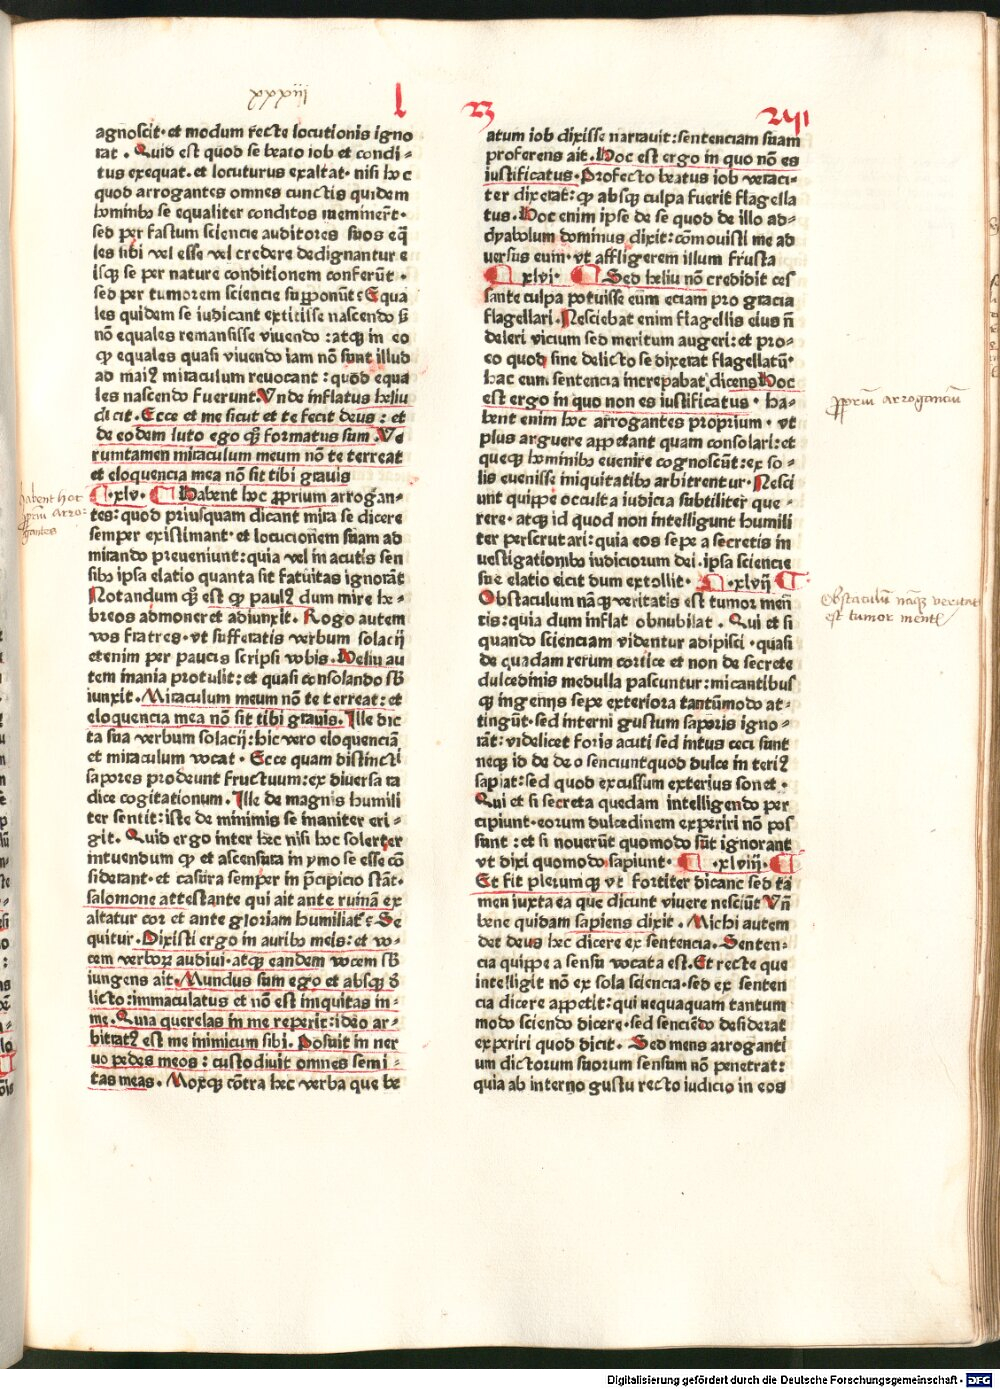 xxxiiij
l
23
agnoscit· et modum recte locutionis igno
rat · Quid est quod se beato iob et condi⸗
tus exequat· et locuturus exaltat· nisi hoc
quod arrogantes omnes cunctis quidem
hominibꝫ se equaliter conditos meminerūt·
sed per fastum sciencie auditores suos eq̄
les sibi vel esse vel credere dedignantur e
isqꝫ se per nature conditionem conferūt ·
sed per tumorem sciencie supponūt: Equa
les quidem se iudicant extitisse nascendo sꝫ
nō equales remansisse viuendo : atqꝫ in eo
ꝙ equales quasi viuendo iam nō sunt illud
ad maiꝰ miraculum reuocant : quōd equa
les nascendo fuerunt. Vnde inflatus heliu
dicit · Ecce et me sicut et te fecit deus : et
de eodem luto ego qꝫ formatus sum · Ve
rumtamen miraculum meum nō te terreat
et eloquencia mea nō sit tibi grauis
·xlv· Habent hoc ꝓprium arrogan⸗
tes: quod priusquam dicant mira se dicere
semper existimant· et locucionem suam ad
mirando preueniunt: quia vel in acutis sen
sibꝫ ipsa elatio quanta sit fatuitas ignorāt
Notandum qꝫ est ꝙ paulꝰ dum mire he⸗
breos admoneret adiunxit. Rogo autem
vos fratres · vt sufferatis verbum solacij
etenim per paucis scripsi vobis. Heliu au
tem inania protulit: et quasi consolando sb̄
iunxit. Miraculum meum nō te terreat: et
eloquencia mea nō sit tibi grauis. Ille dic
ta sua verbum solacij: hic vero eloquenciā
et miraculum vocat · Ecce quam distincti
sapores prodeunt fructuum: ex diuersa ra
dice cogitationum. Ille de magnis humili
ter sentit: iste de minimis se inaniter eri⸗
git. Quid ergo inter hec nisi hoc solerter
intuendum ꝙ et ascensura in ymo se esse cō
siderant· et casura semper in p̄cipicio stāt·
salomone attestante qui ait ante ruinā ex
altatur cor et ante gloriam humiliatꝛ: Se
quitur. Dixisti ergo in auribꝫ meis: et vo⸗
cem verborꝝ audiui· atqꝫ eandem vocem sb̄
iungens ait. Mundus sum ego et absqꝫ d̄
licto: immaculatus et nō est iniquitas in⸗
me. Quia querelas in me reperit: ideo ar⸗
bitratꝰ est me inimicum sibi. Posuit in ner
uo pedes meos : custodiuit omnes semi⸗
tas meas. Moxqꝫ cōtra hec verba que be
atum iob dixisse narrauit: sentenciam suam
proferens ait. Hoc est ergo in quo nō es
iustificatus. Profecto beatus iob veraci⸗
ter dixerat: ꝙ absqꝫ culpa fuerit flagella
tus. Hoc enim ipse de se quod de illo ad⸗
dyabolum dominus dixit: cōmouisti me ad
uersus eum· vt affligerem illum frusta
·xlvi· Sed heliu nō credidit ces
sante culpa potuisse eum eciam pro gracia
flagellari. Nesciebat enim flagellis eius n̄
deleri vicium sed meritum augeri: et pro⸗
eo quod sine delicto se dixerat flagellatū·
hac eum sentencia increpabat dicens Hoc
est ergo in quo non es iustificatus · ha⸗
bent enim hoc arrogantes proprium · vt
plus arguere appetant quam consolari: et
queqꝫ hominibꝫ euenire cognoscūt: ex so⸗
lis euenisse iniquitatibꝫ arbitrentur· Nesci
unt quippe occulta iudicia subtiliter que⸗
rere· atqꝫ id quod non intelligunt humili
ter perscrutari: quia eos sepe a secretis in
uestigationibꝫ iudiciorum dei. ipsa sciencie
sue elatio eicit dum extollit· ·xlvij·
Obstaculum nāqꝫ veritatis est tumor men
tis: quia dum inflat obnubilat · Qui et si
quando scienciam videntur adipisci · quasi
de quadam rerum cortice et non de secrete
dulcedinis medulla pascuntur: micantibus
qꝫ ingenijs sepe exteriora tantūmodo at⸗
tingūt· sed interni gustum saporis igno⸗
rāt: videlicet foris acuti sed intus ceci sunt
neqꝫ id de deo senciunt quod dulce in teriꝰ
sapiat: sed quod excussum exterius sonet ·
Qui et si secreta quedam intelligendo per
cipiunt· eorum dulcedinem experiri nō pos
sunt : et si nouerūt quomodo sūt ignorant
vt dixi quomodo sapiunt· ·xlviij·
Et fit plerumqꝫ vt fortiter dicant sed ta
men iuxta ea que dicunt viuere nesciūt Vn̄
bene quidam sapiens dixit . Michi autem
det deus hec dicere ex sentencia. Senten⸗
cia quippe a sensu vocata est. Et recte que
intelligit nō ex sola sciencia· sed ex senten
cia dicere appetit: qui nequaquam tantum
modo sciendo dicere· sed senciēdo desiderat
experiri quod dicit · Sed mens arroganti
um dictorum suorum sensum nō penetrat:
quia ab interno gustu recto iudicio in eos
habent hoc
ꝓprium arro⸗
gantes
ꝓprium arrogancium
Obstaculū nāqꝫ veritat
est tumor mentꝭ
Digitalisierung gefördert durch die Deutsche Forschungsgemeinschaft · DFG